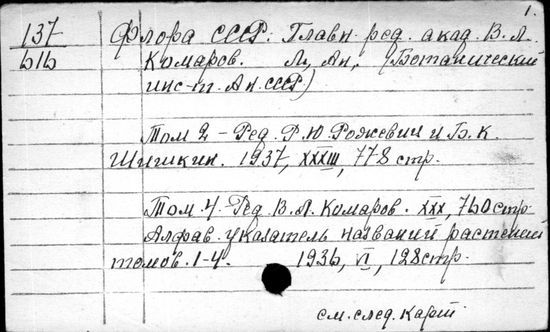 1.
137 Флора СССР. Главн. ред. акад. В.Л.
616 Комаров. Л., Ан, (Ботанический
инс-т. Ан. СССР)
Том 2 - Ред. Р.Ю. Рожевич и Б.К.
Шишкин. 1937, XXXIII, 778 стр.
Том 4. Ред. В.Л. Комаров. XXX, 760 стр.
Алфав. указатель названий растений
томов. 1-4. 1936, VI, 128 стр.
см. след. карт